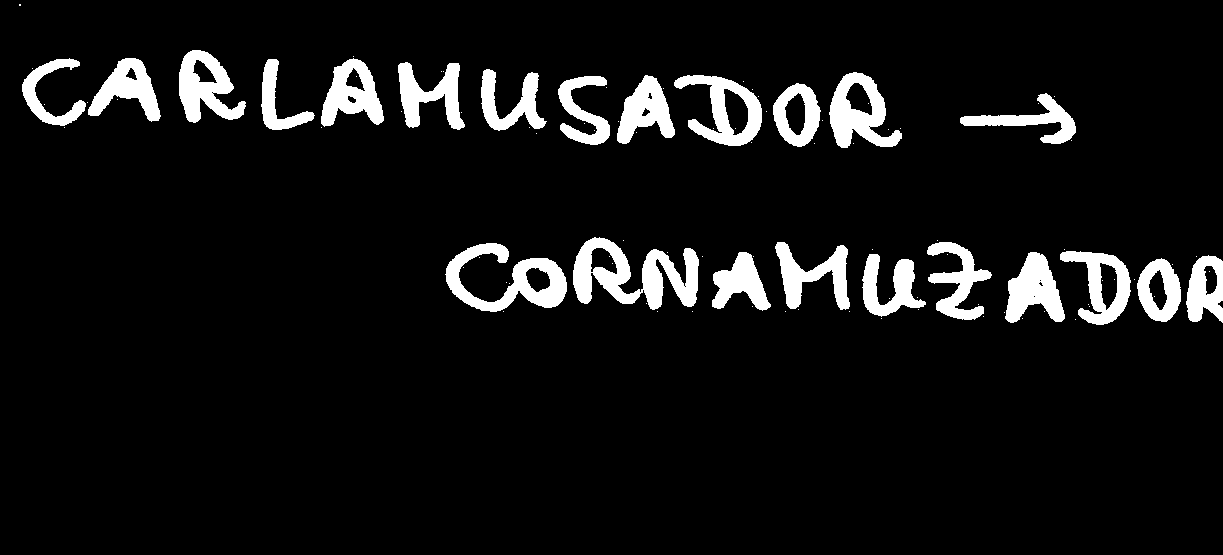 CARLAMUSADOR →
CORNAMUZADOR